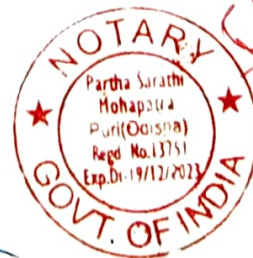 NOTARY
Partha Sarathi
Mohapatra
Puri(Odisha)
Regd No.13751
Exp.Dt-19/12/2023
GOVT. OF INDIA